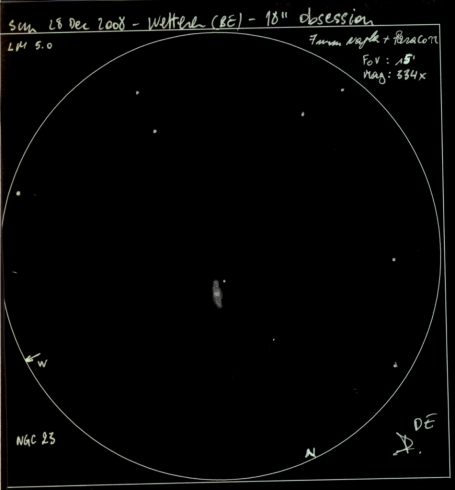 Sun 28 Dec 2008 - Wetteren (BE) - 18" obsession
LM 5.0
7mm Nagler + Paracorr
FoV : 15'
Mag: 334x
W
NGC 23
N
DE